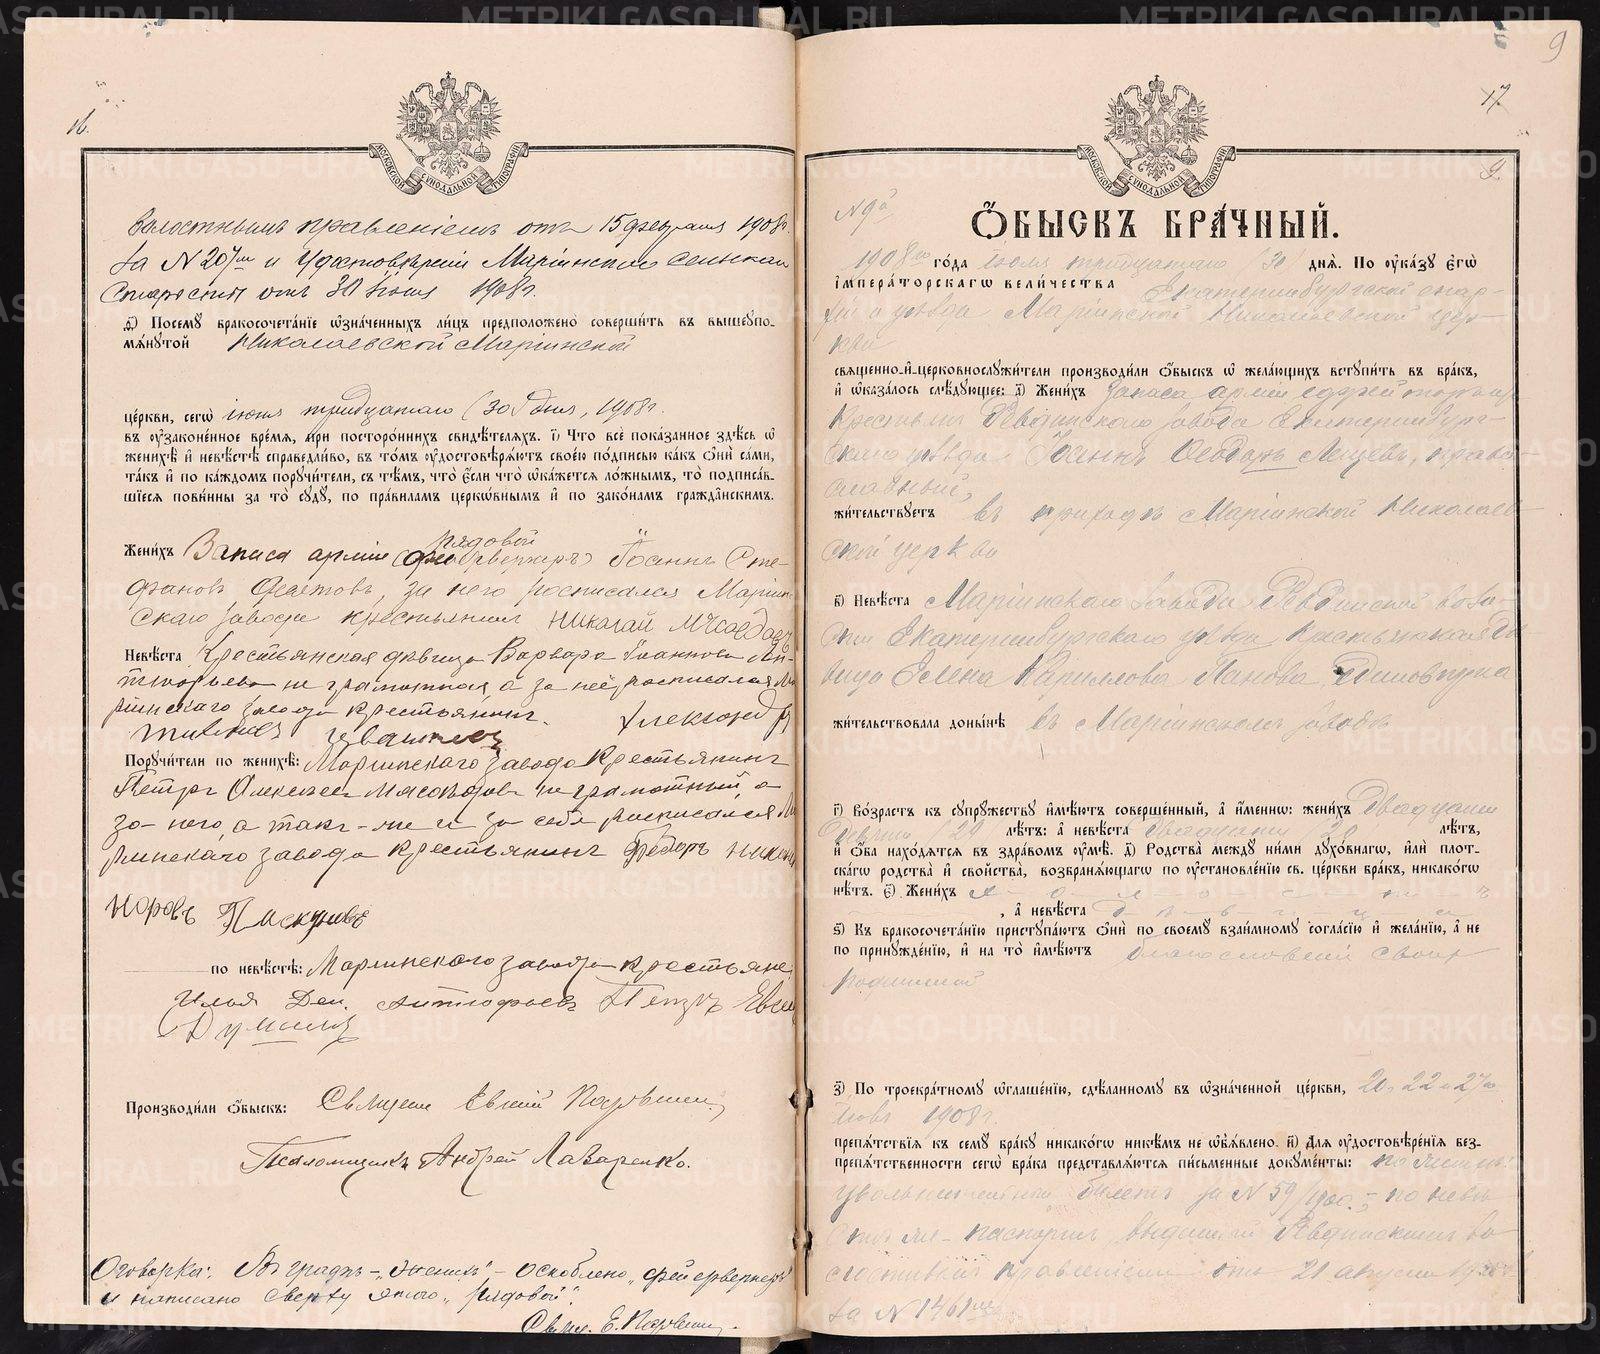 16.
волостнымъ правленіемъ отъ 15 февраля 1908г.
за N 207 и удостовѣреніи Маріинскаго сельскаго
старосты отъ 30 іюня 1908г.
Посемꙋ бракосочета́нїе ѡ҆зна́ченныхъ ли́цъ предположено̀ соверши́ть въ вышеꙋпо-
мѧ́нꙋтой Николаевской Маріинской
це́ркви, сегѡ̀ іюня тридцатаго (30) дня, 1908г.
въ ᲂу҆зако́ненное вре́мѧ, при посторо́ннихъ свидѣ́телѧхъ. і҃) Что̀ всѐ пока́занное здѣ́сь ѡ҆
женихѣ̀ и҆ невѣ́стѣ справедли́во, въ то́мъ ᲂу҆достовѣрѧ́ютъ свое́ю по́дписью ка́къ ѻ҆нѝ са́ми,
та́къ и҆ по ка́ждомъ порꙋчи́тели, съ тѣ́мъ, что̀ є҆́сли что̀ ѡ҆ка́жетсѧ ло́жнымъ, то̀ подписа́в-
шїесѧ пови́нны за то̀ сꙋдꙋ̀, по пра́виламъ церко́внымъ и҆ по зако́намъ гражда́нскимъ.
рядовой
Жени́хъ Запаса арміи (фейерверкеръ) Іоаннъ Сте-
фановъ, за него росписался Маріин-
скаго завода крестьянинъ Николай Мясоедовъ
Невѣ́ста Крестьянская дѣвица Варвара Іоаннова Ан-
не грамотная, а за неё росписался Ма
ріинскаго завода крестьянинъ. Александръ
Порꙋчи́тели по женихѣ̀: Маріинскаго завода Крестьянинъ
Петръ Алексѣевъ Мясоѣдовъ не грамотный, а
за него, а так-же и за себя росписался Ма
ріинскаго завода крестьянинъ Ѳедоръ Никаноровъ
по невѣ́стѣ: Маріинскаго завода крестьяне
Илья Петръ
Производи́ли ѻ҆́быскъ: Священ. Евгеній
Псаломщикъ Андрей Лазаренко.
Оговорка: Въ графѣ - „женихъ" - оскоблено „фейерверкеръ"
и написано сверху этого „рядовой".
Свящ. Е.
9
17
9.
N 9й
Ѻ҆́БЫСКЪ БРА́ЧНЫЙ.
1908го го́да іюня тридцатаго (30) днѧ̀. По ᲂу҆ка́зꙋ є҆гѡ̀
и҆мпера́торскагѡ вели́чества Екатеринбургской епар-
хіи и уѣзда Маріинской Николаевской цер-
кви
свѧще́нно-и҆-церковнослꙋжи́тели производи́ли ѻ҆́быскъ ѡ҆ жела́ющихъ встꙋпи́ть въ бра́къ,
и҆ ѡ҆каза́лось слѣ́дꙋющее: а҃) Жени́хъ Запаса арміи ефрейторъ изъ
крестьянъ Ревдинскаго завода Екатеринбург-
скаго уѣзда Іоаннъ Ѳеодоровъ Лещевъ, право-
славный,
жи́тельствꙋетъ въ приходѣ Маріинской Николаев-
ской церкви
в҃) Невѣ́ста Маріинскаго завода Ревдинской воло-
сти Екатеринбургскаго уѣзда крестьянская дѣ-
вица Елена Кириллова Панова, единовѣрка
жи́тельствовала доны́нѣ въ Маріинскомъ заводѣ
г҃) Во́зрастъ къ сꙋпрꙋ́жествꙋ и҆мѣ́ютъ соверше́нный, а҆ и҆́менно: жени́хъ двадцати
девяти /29 лѣ́тъ: а҆ невѣ́ста двадцати /20 лѣ́тъ,
и҆ ѻ҆́ба нахо́дѧтсѧ въ здра́вомъ ᲂу҆мѣ̀. д҃) Родства̀ ме́ждꙋ ни́ми дꙋхо́внагѡ, и҆лѝ пло́т-
ска́гѡ родства̀ и҆ сво́йства, возбранѧ́ющагѡ по ᲂу҆становле́нїю св. це́ркви бра́къ, никако́гѡ
нѣ́тъ. є҃) Жени́хъ х-о-л-о-с-т-ъ
, а҆ невѣ́ста д-ѣ-в-и-ц-а
ѕ҃) Къ бракосочета́нїю пристꙋпа́ютъ ѻ҆нѝ по своемꙋ̀ взаи́мномꙋ согла́сїю и҆ жела́нїю, а҆ не
по принꙋжде́нїю, и҆ на то̀ и҆мѣ́ютъ благословеніе своихъ
родителей
з҃) По троекра́тномꙋ ѡ҆глаше́нїю, сдѣ́ланномꙋ въ ѡ҆зна́ченной це́ркви, 20, 22 и 27го
1908г.
препѧ́тствїѧ къ семꙋ̀ бра́кꙋ никако́гѡ никѣ́мъ не ѡ҆б̾ѧ́влено. и҃) Длѧ̀ ᲂу҆достовѣре́нїѧ без-
препѧ́тственности сегѡ̀ бра́ка представлѧ́ютсѧ пи́сьменные докꙋме́нты:
увольнительный билетъ за N 59/1906г. - по невѣ-
стѣ - паспортъ, выданный Ревдинскимъ во-
лостнымъ правленіемъ отъ 21 августа
за N 1461